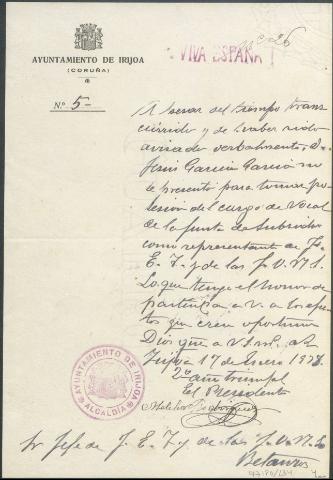 AYUNTAMIENTO DE IRIJOA
(CORUÑA)
¡ VIVA ESPAÑA !
N.º 5-
A pesar del tiempo trans
currido y de haber sido
avisado verbalmente, D.
Jesus Garcia Garcia no
se presentó para tomar po
sesion del cargo de Vocal
de la Junta de Subsidio
como representante de F.
E. T. y de las J. O. N. S.
Lo que tengo el honor de
participar a V. a los efec
tos que crea oportuno
Dios gue a V. m. a.
Irijoa 17 Enero 1938
2º año triunfal
El Presidente
Melchor
AYUNTAMIENTO DE IRIJOA
ALCALDIA
Sr Jefe de F. E. T. y de las J. O. N. S.
Betanzos